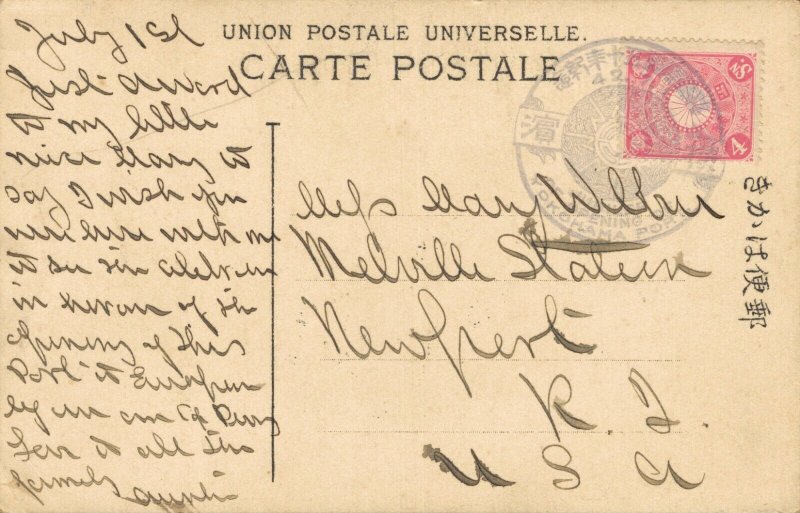 July 1st
Just a word
to my little
niece Mary to
say I wish you
were here with me
to see the celebration
in honor of the
opening of this
Port to European
by our own Com Perry
Love to all the
family
Auntie
UNION POSTALE UNIVERSELLE.
CARTE POSTALE
Miss Mary Wilbur
Melville Station
Newport
R. I.
U S A
濱
YOKOHAMA PORT
きかは便郵